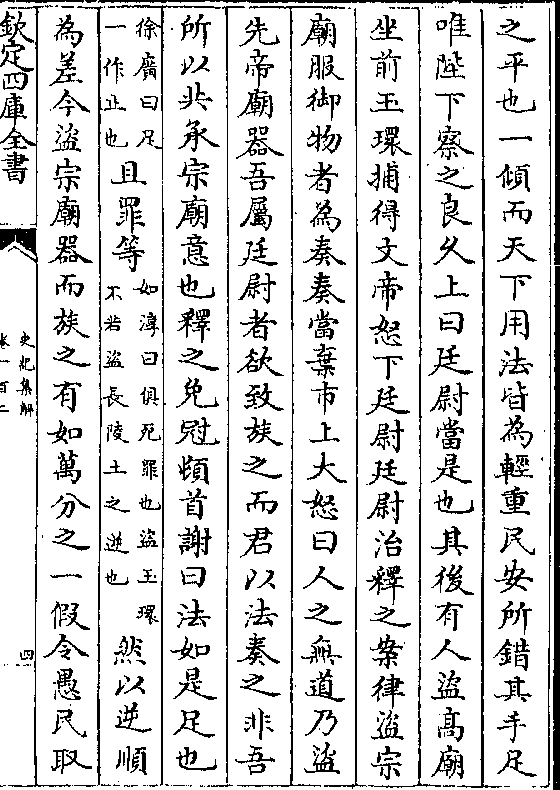 之平也一傾而天下用法皆為輕重民安所錯其手足
唯陛下察之良久上曰廷尉當是也其後有人盜高廟
坐前玉環捕得文帝怒下廷尉廷尉治釋之案律盜宗
廟服御物者為奏奏當棄市上大怒曰人之無道乃盜
先帝廟器吾屬廷尉者欲致族之而君以法奏之非吾
所以共承宗廟意也釋之免冠頓首謝曰法如是足也
徐廣曰足
一作止也
且罪等
如淳曰俱死罪也盜玉環
不若盜長陵土之逆也
然以逆順
為差今盜宗廟器而族之有如萬分之一假令愚民取
欽定四庫全書
史記集解
卷一百二
四